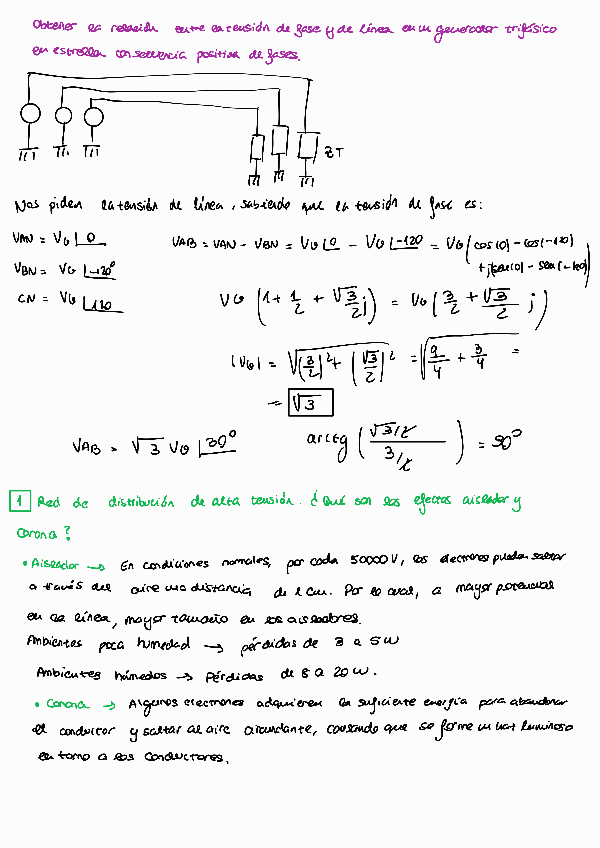 Obtener la relación entre la tensión de fase y de línea en un generador trifásico
en estrella con secuencia positiva de fases.
ZT
Nos piden la tensión de línea, sabiendo que la tensión de fase es:
VAN = VG∠0
VAB = VAN - VBN = VG∠0 - VG∠-120 = VG(cos(0) - cos(-120)
+ j(sen(0) - sen(-120))
VBN = VG∠-120°
CN = VG∠120
VG (1 + 1/2 + √3/2 j) = VG (3/2 + √3/2 j)
|VG| = √((3/2)² + (√3/2)²) = √(9/4 + 3/4) =
= √3
VAB = √3 VG∠30°
arctg ((√3/2)/(3/2)) = 30°
1 Red de distribución de alta tensión. ¿Qué son los efectos aislador y
corona?
• Aislador → En condiciones normales, por cada 50000V, los electrones pueden saltar
a través del aire una distancia de 1 cm. Por lo cual, a mayor potencial
en la línea, mayor tamaño en los aisladores.
Ambientes poca humedad → pérdidas de 3 a 5W
Ambientes húmedos → Pérdidas de 8 a 20W.
• Corona → Algunos electrones adquieren la suficiente energía para abandonar
el conductor y saltar al aire circundante, causando que se forme un haz luminoso
en torno a los conductores.